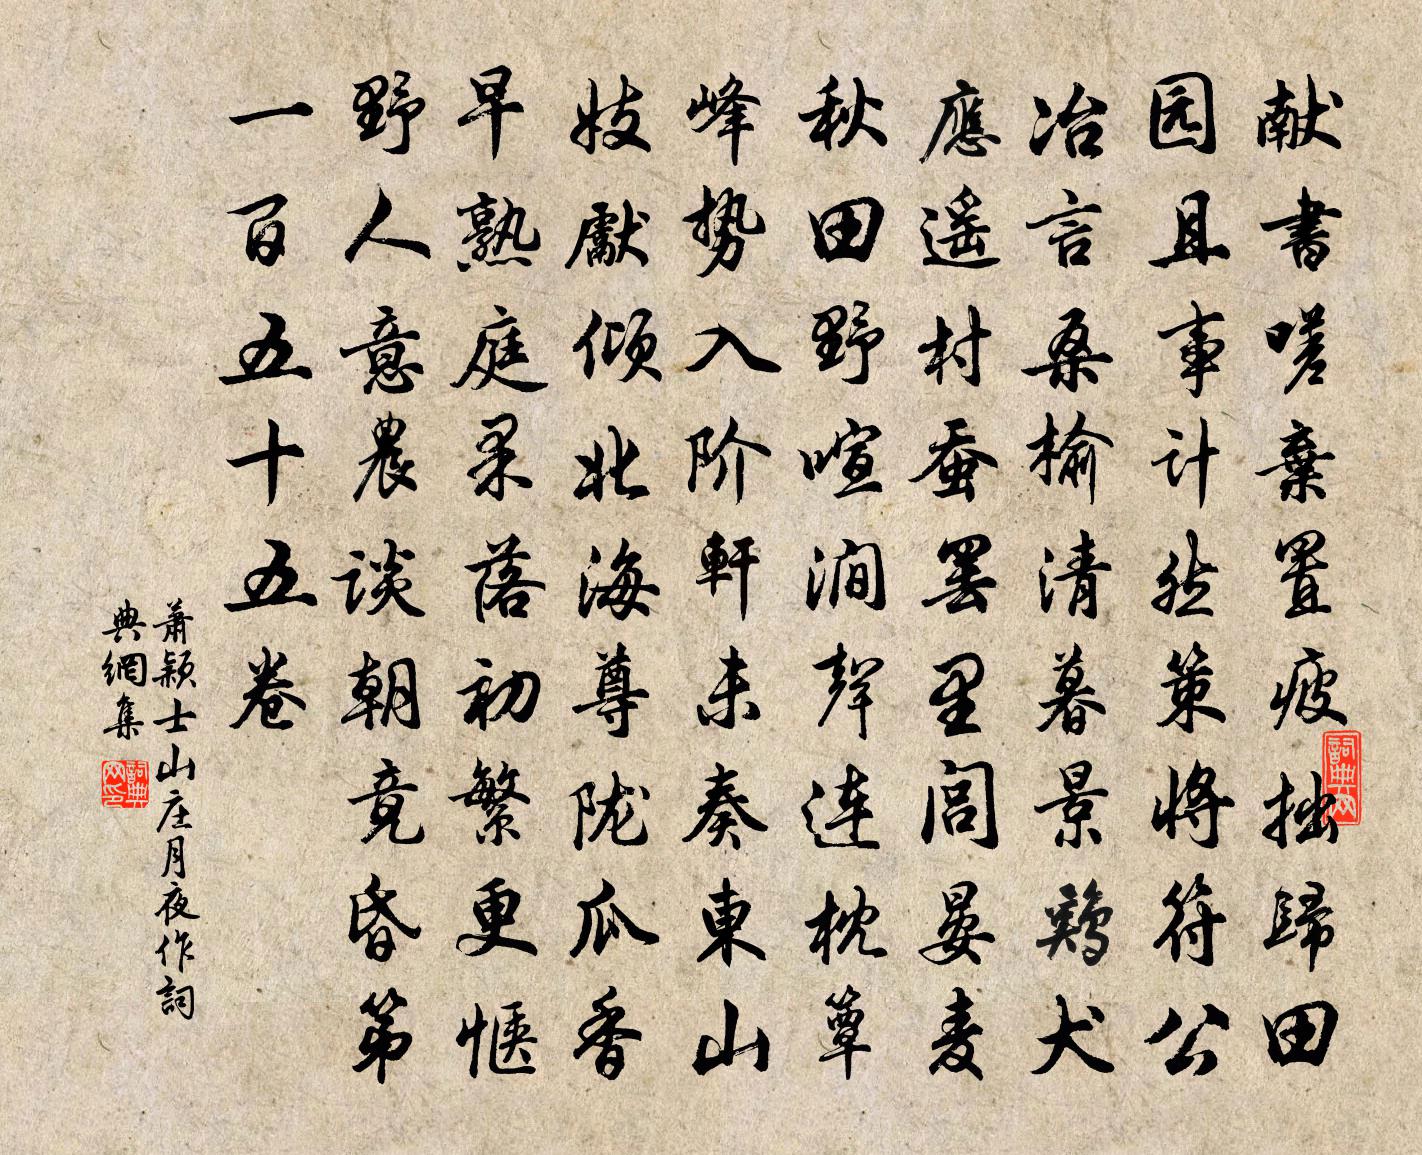 献書嗟棄置疲拙歸田
园且事计然策将符公
冶言桑榆清暮景鷄犬
應遥村蚕罢里闾晏麦
秋田野喧澗聲连枕簟
峰势入阶軒未奏東山
妓獻倾北海尊陇瓜香
早熟庭果落初繁更惬
野人意農谈朝竟昏第
一百五十五卷
萧颖士山庄月夜作詞
典網集
詞典网
詞典